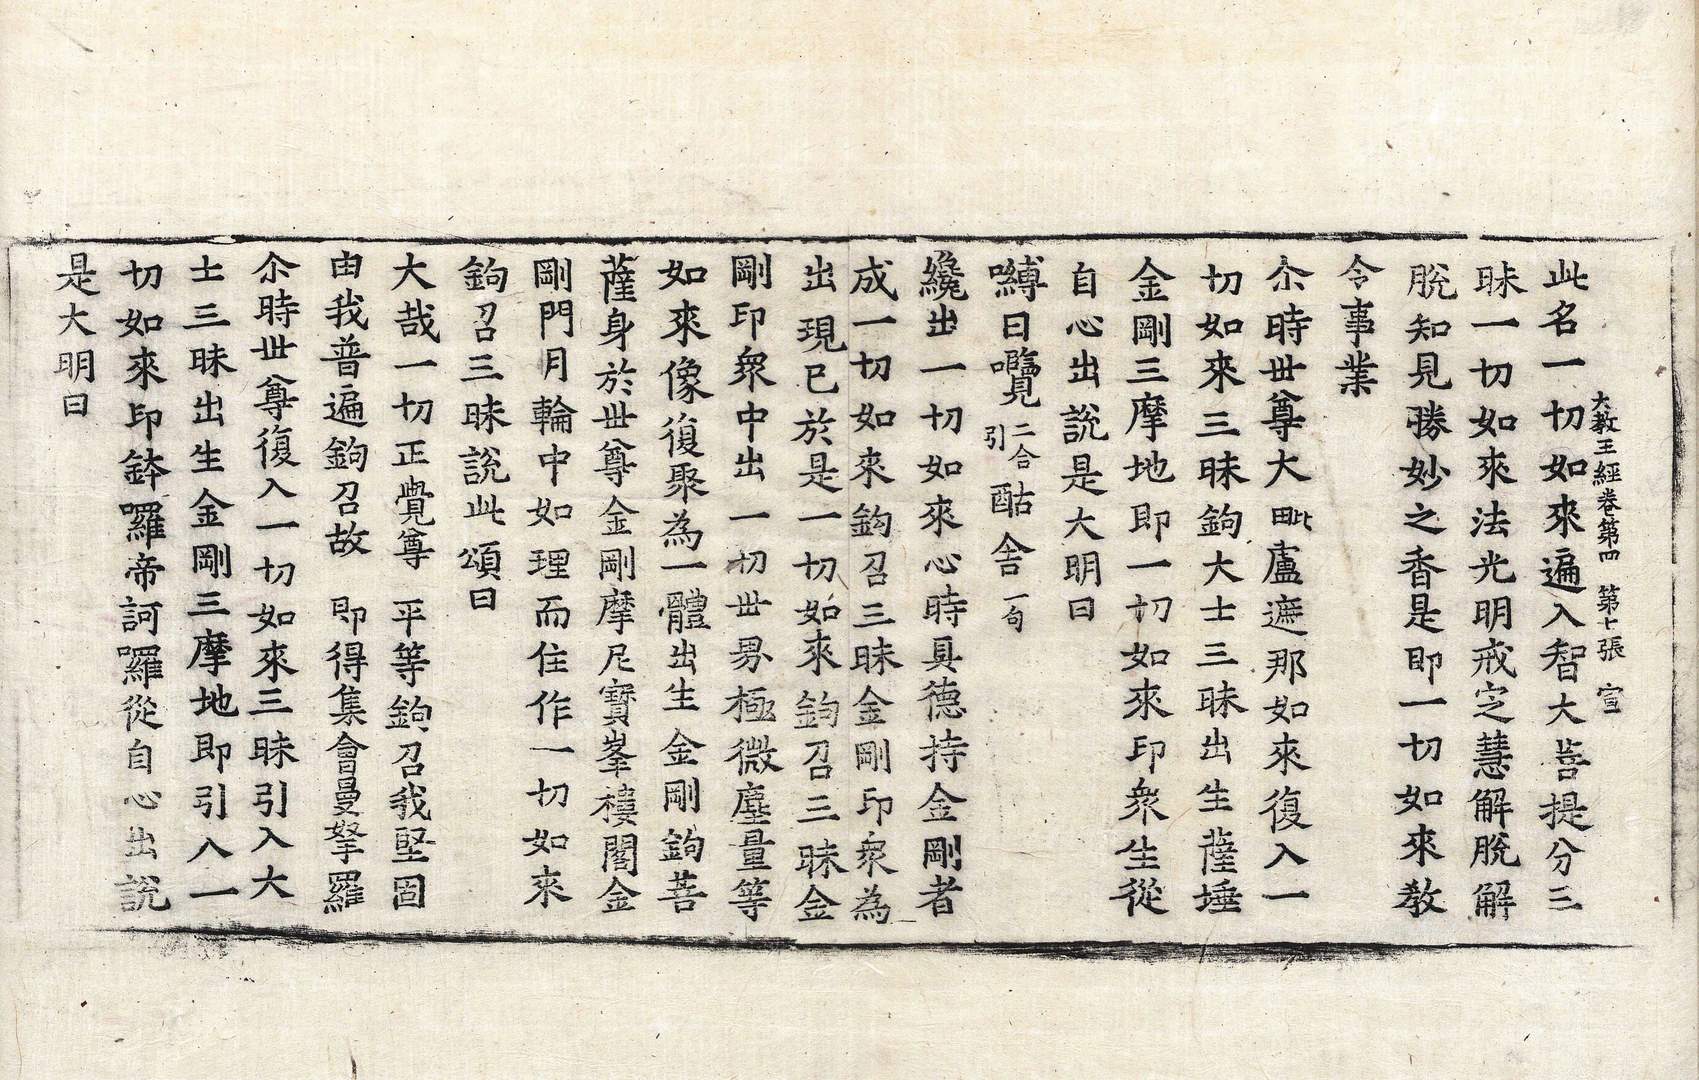 大教王經卷第四　第七張　宣
此名一切如來遍入智大菩提分三
昧一切如來法光明戒定慧解脫解
脫知見勝妙之香是即一切如來教
令事業
尒時世尊大毗盧遮那如來復入一
切如來三昧鉤大士三昧出生薩埵
金剛三摩地即一切如來印衆生從
自心出說是大明曰
嚩日囕二合引酤舍一句
纔出一切如來心時具德持金剛者
成一切如來鉤召三昧金剛印衆為
出現已於是一切如來鉤召三昧金
剛印衆中出一切世界極微塵量等
如來像復聚為一體出生金剛鉤菩
薩身於世尊金剛摩尼寶峯樓閣金
剛門月輪中如理而住作一切如來
鉤召三昧說此頌曰
大哉一切正覺尊　平等鉤召我堅固
由我普遍鉤召故　即得集會曼拏羅
尒時世尊復入一切如來三昧引入大
士三昧出生金剛三摩地即引入一
切如來印鉢囉帝訶囉從自心出說
是大明曰